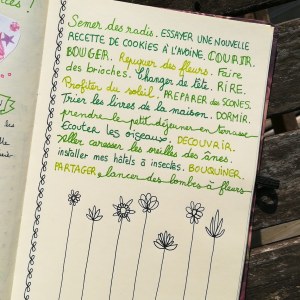 Semer des radis. ESSAYER UNE NOUVELLE
RECETTE DE COOKIES À L'AVOINE. COURIR.
BOUGER. Repiquer des fleurs. Faire
des brioches. Changer de tête. RIRE.
Profiter du soleil. PRÉPARER des SCONES.
Trier les livres de la maison. DORMIR.
prendre le petit déjeuner en terrasse
Ecouter les oiseaux. DECOUVRIR.
aller caresser les oreilles des ânes.
installer mes hôtels à insectes. BOUQUINER.
PARTAGER. lancer des bombes à fleurs